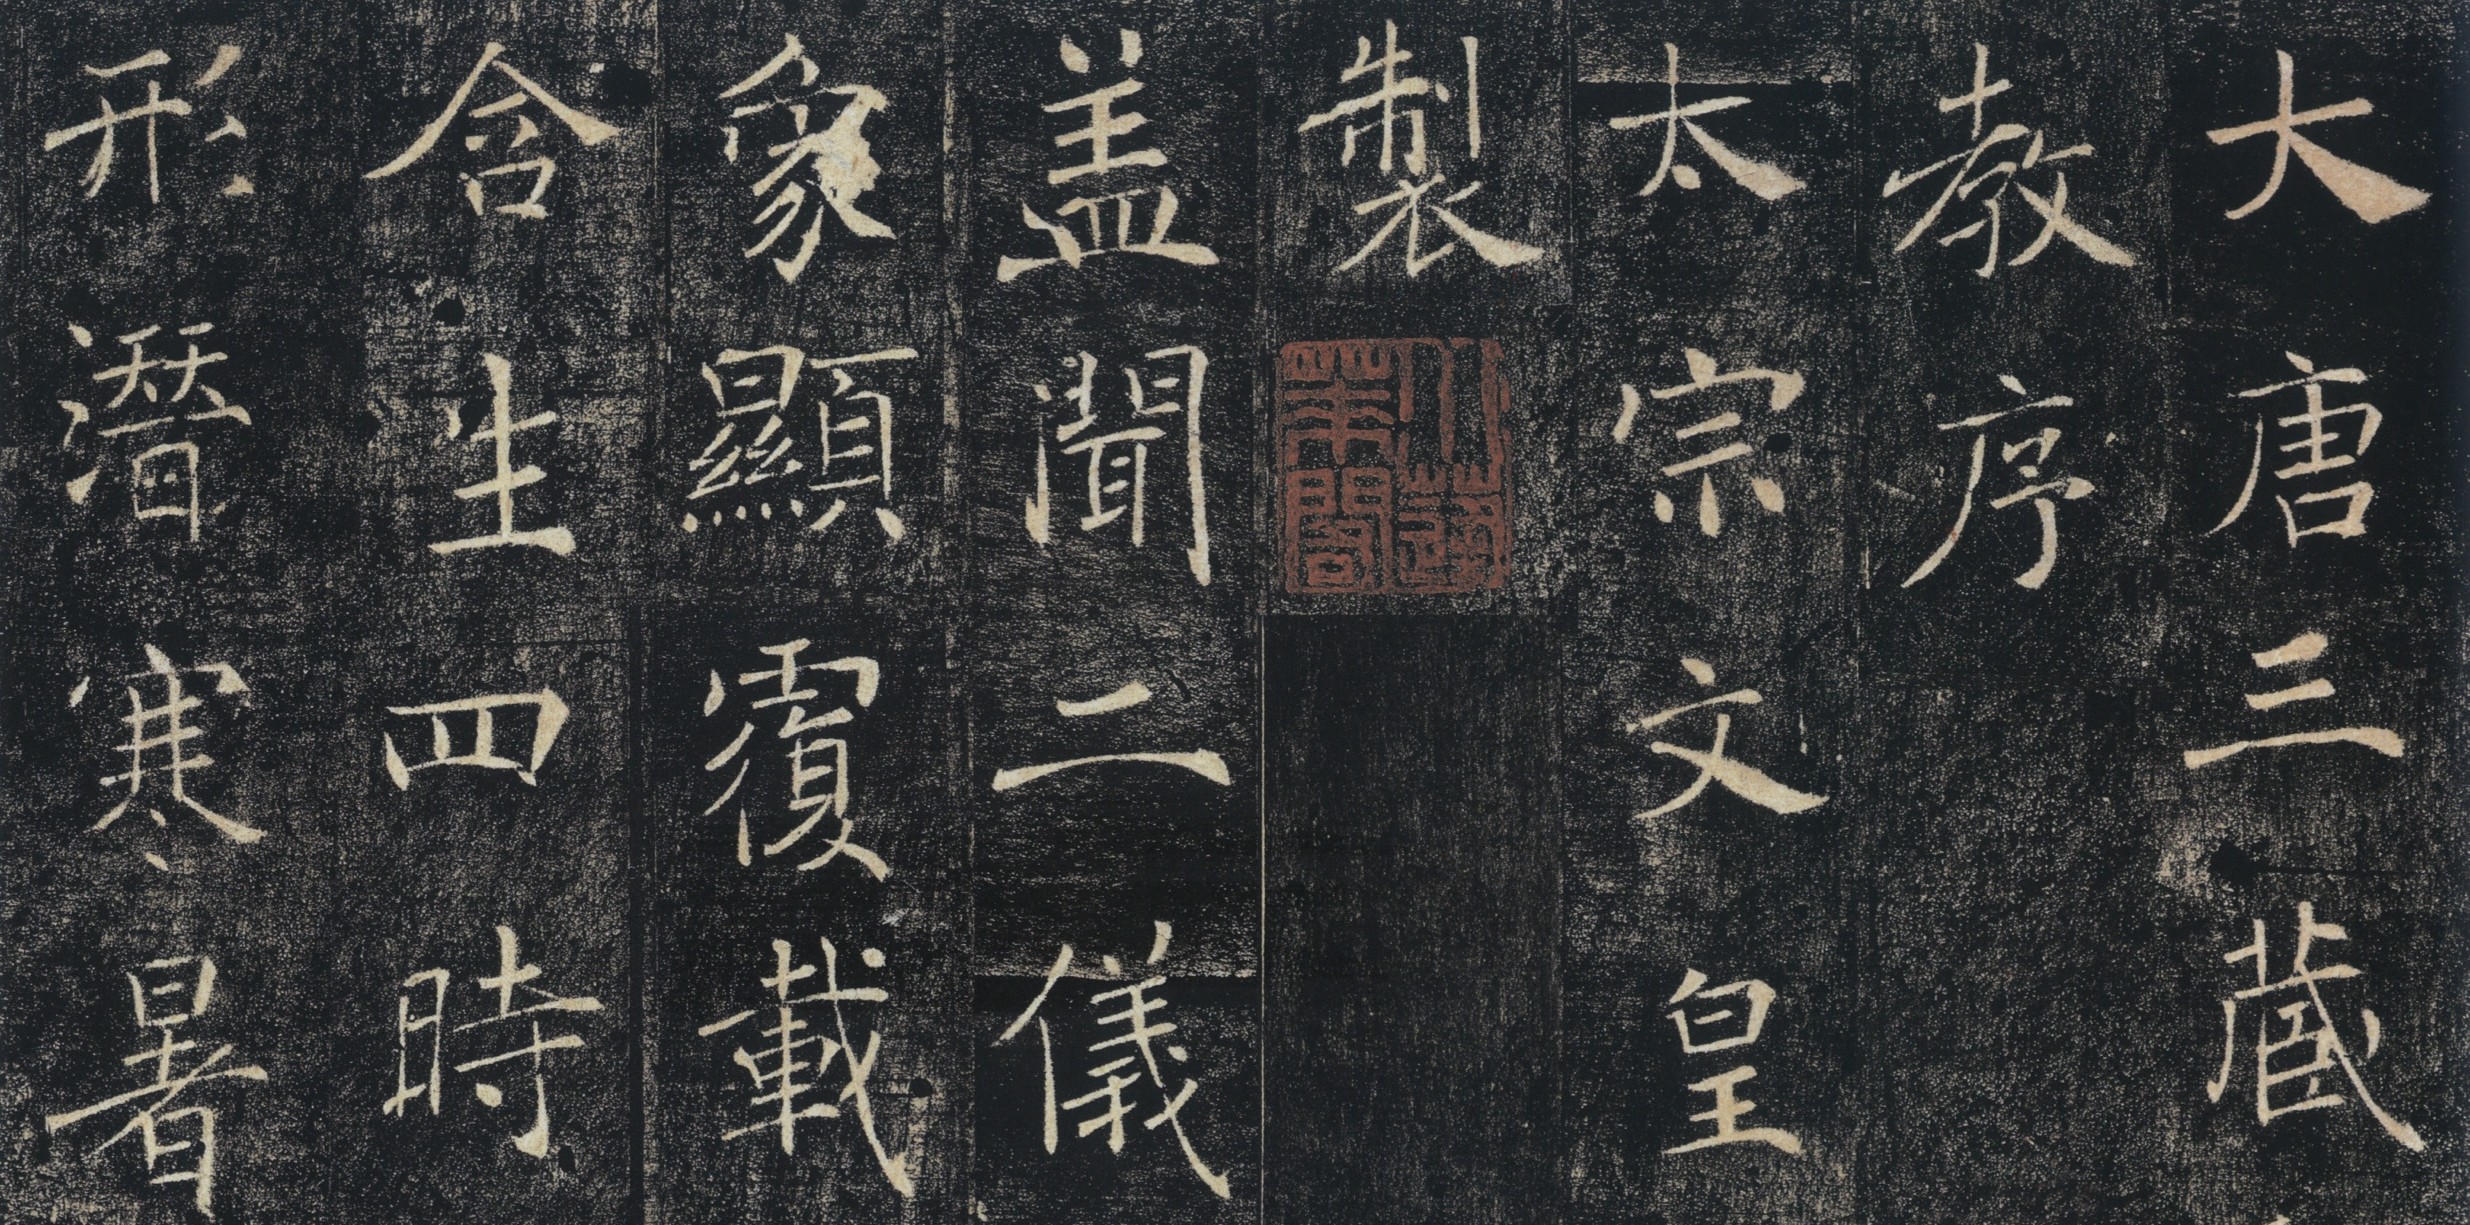 大唐三藏
教序
太宗文皇
製
小蓬
萊閣
盖聞二儀
象顯覆載
含生四時
形潛寒暑